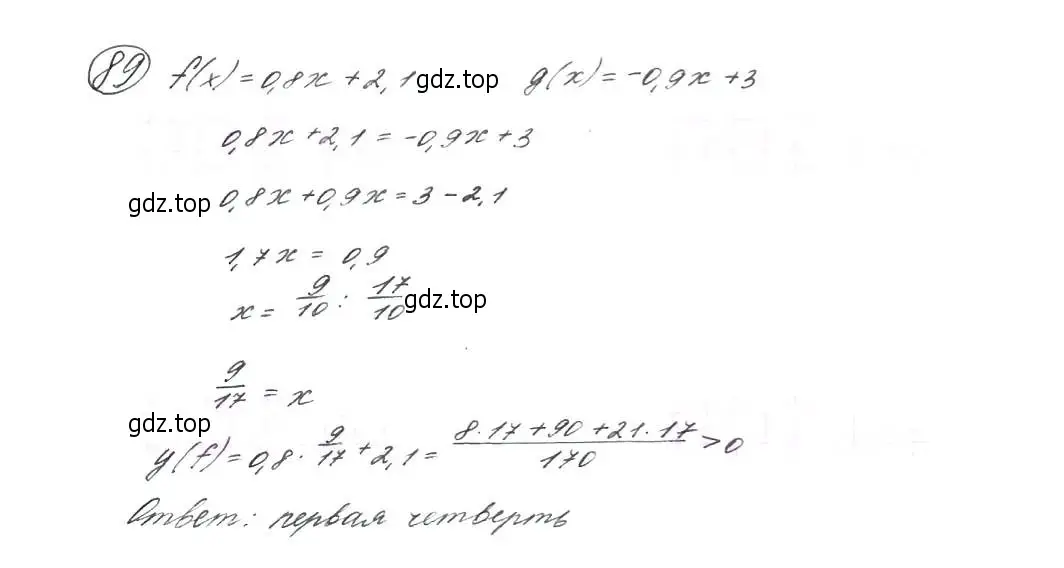 89 f(x) = 0,8x + 2,1 gdz.top g(x) = -0,9x + 3
0,8x + 2,1 = -0,9x + 3
gdz.top 0,8x + 0,9x = 3 - 2,1
1,7x = 0,9
x = 9/10 : 17/10 gdz.top
9/17 = x
gdz.top
y(f) = 0,8 · 9/17 + 2,1 = (8·17 + 90 + 21·17)/170 > 0
Ответ: первая четверть